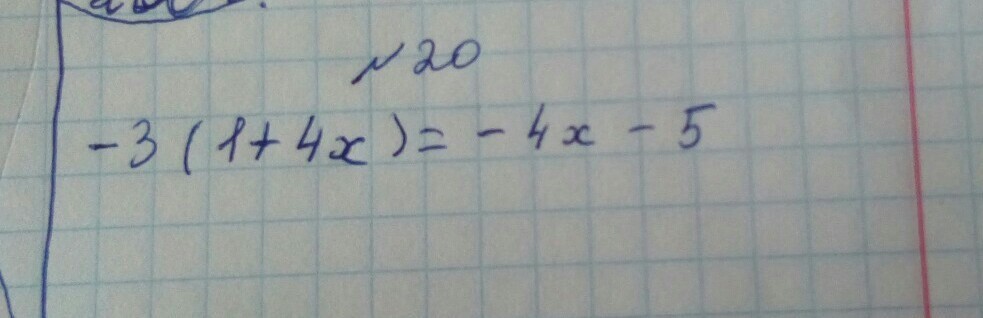 №20
-3(1+4x)=-4x-5